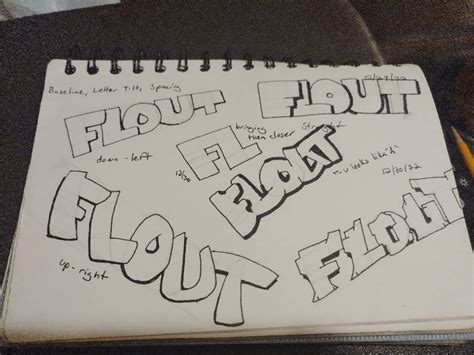 Baseline, Letter Tilt, Spacing
12/29/22
FLOUT
FLOUT
down-left
FL
bringing
them closer
Straight
12/30
FLOUT
u looks like "A"
12/30/22
FLOUT
FLOUT
up-right